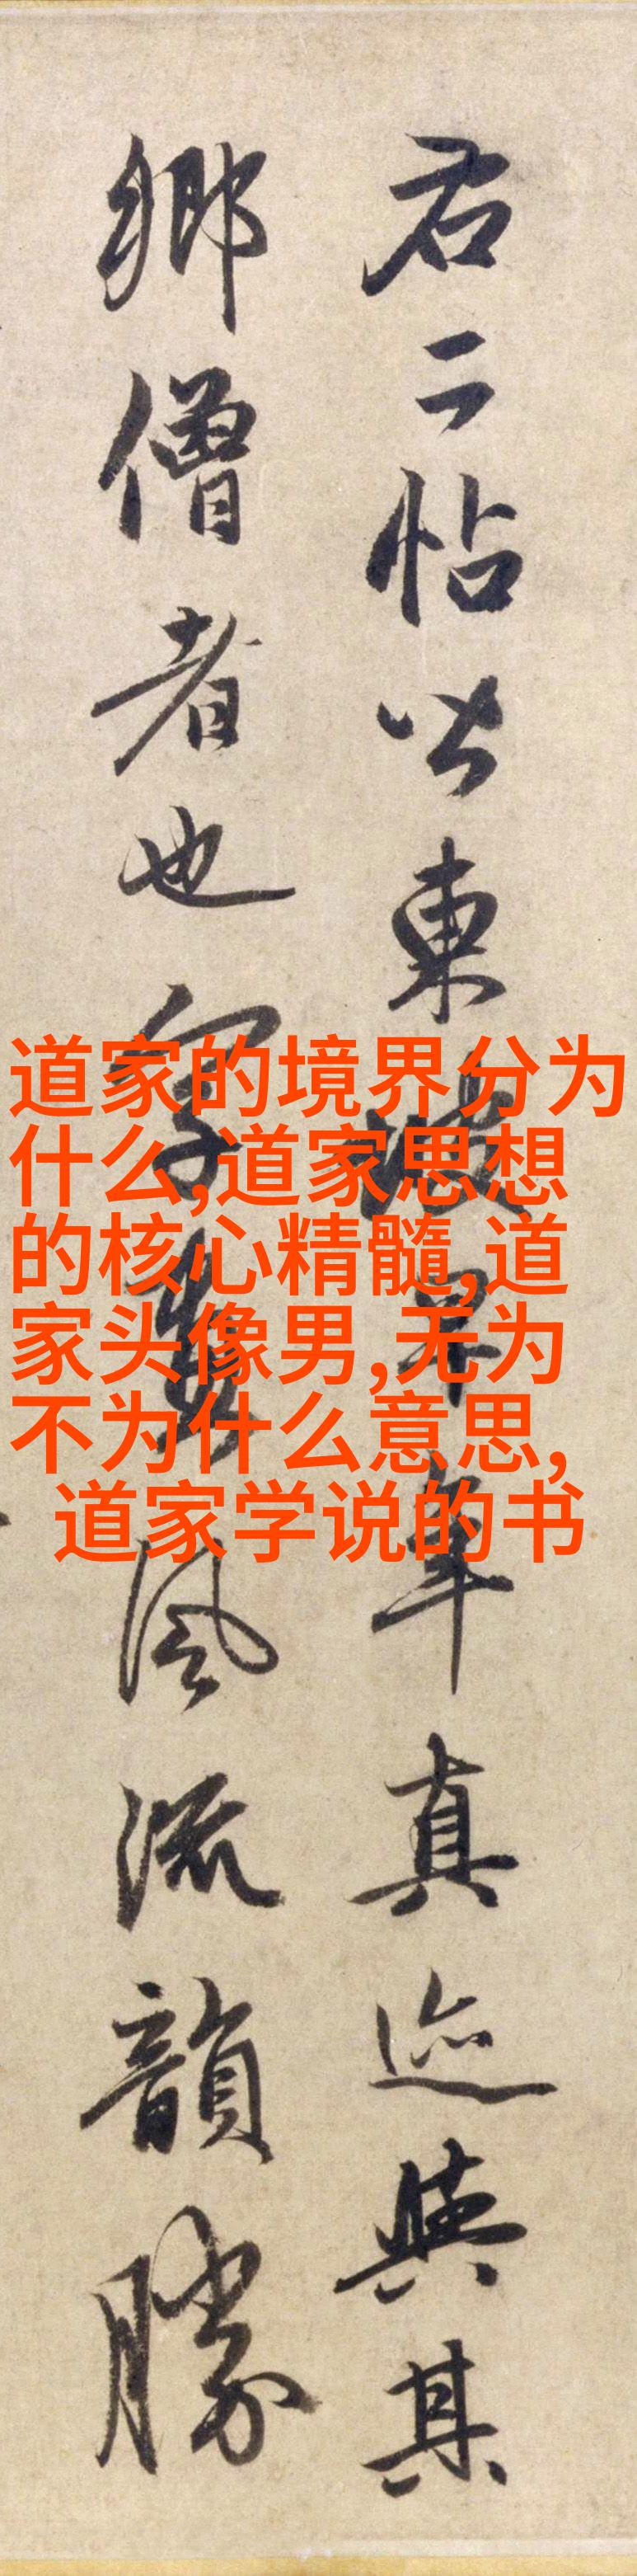 右二帖皆東坡早年真迹與其
鄉僧者也字畫風流韻勝
道家的境界分为
什么,道家思想
的核心精髓,道
家头像男,无为
不为什么意思,
道家学说的书